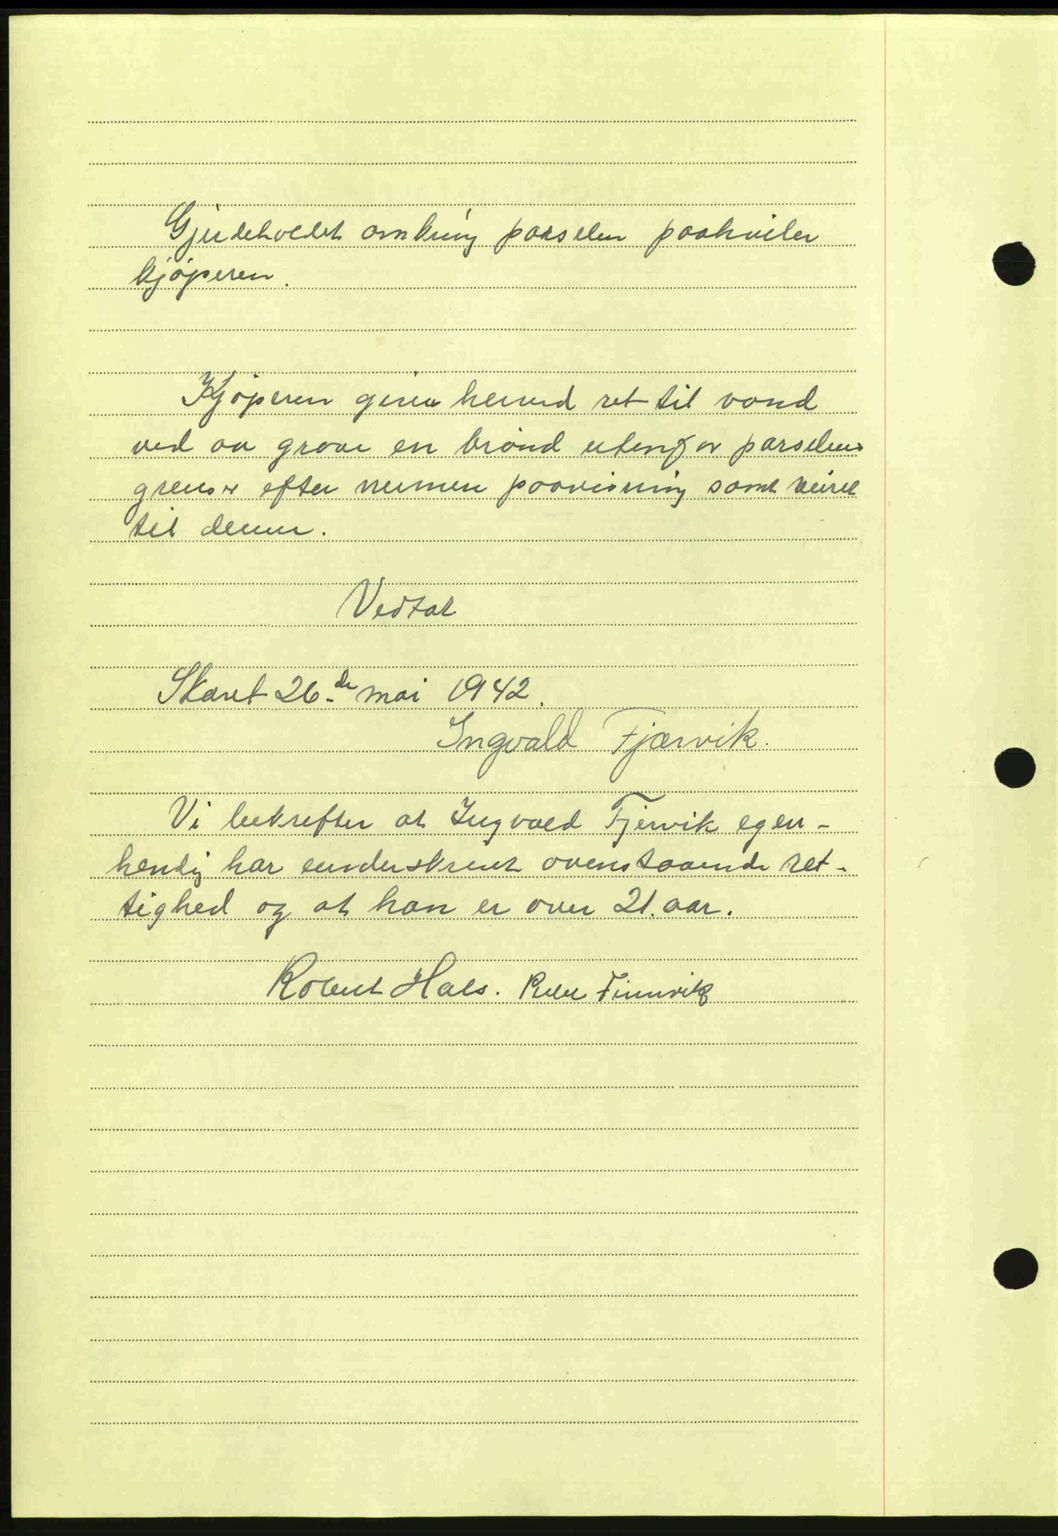 Gjerdeholdet omkring parselen paahviler
kjøperen.
Kjøperen gives herved ret til vand
ved aa grave en brønd utenfor parselens
grenser efter nermere paavisning samt veiret
til denne.
Vedtat
Skaret 26-de mai 1942.
Ingvald Fjærvik.
Vi bekrefter at Ingvald Fjervik egen-
hendig har underskrevet ovenstaaende ret-
tighed og at han er over 21. aar.
Robert Hals. Finnvik